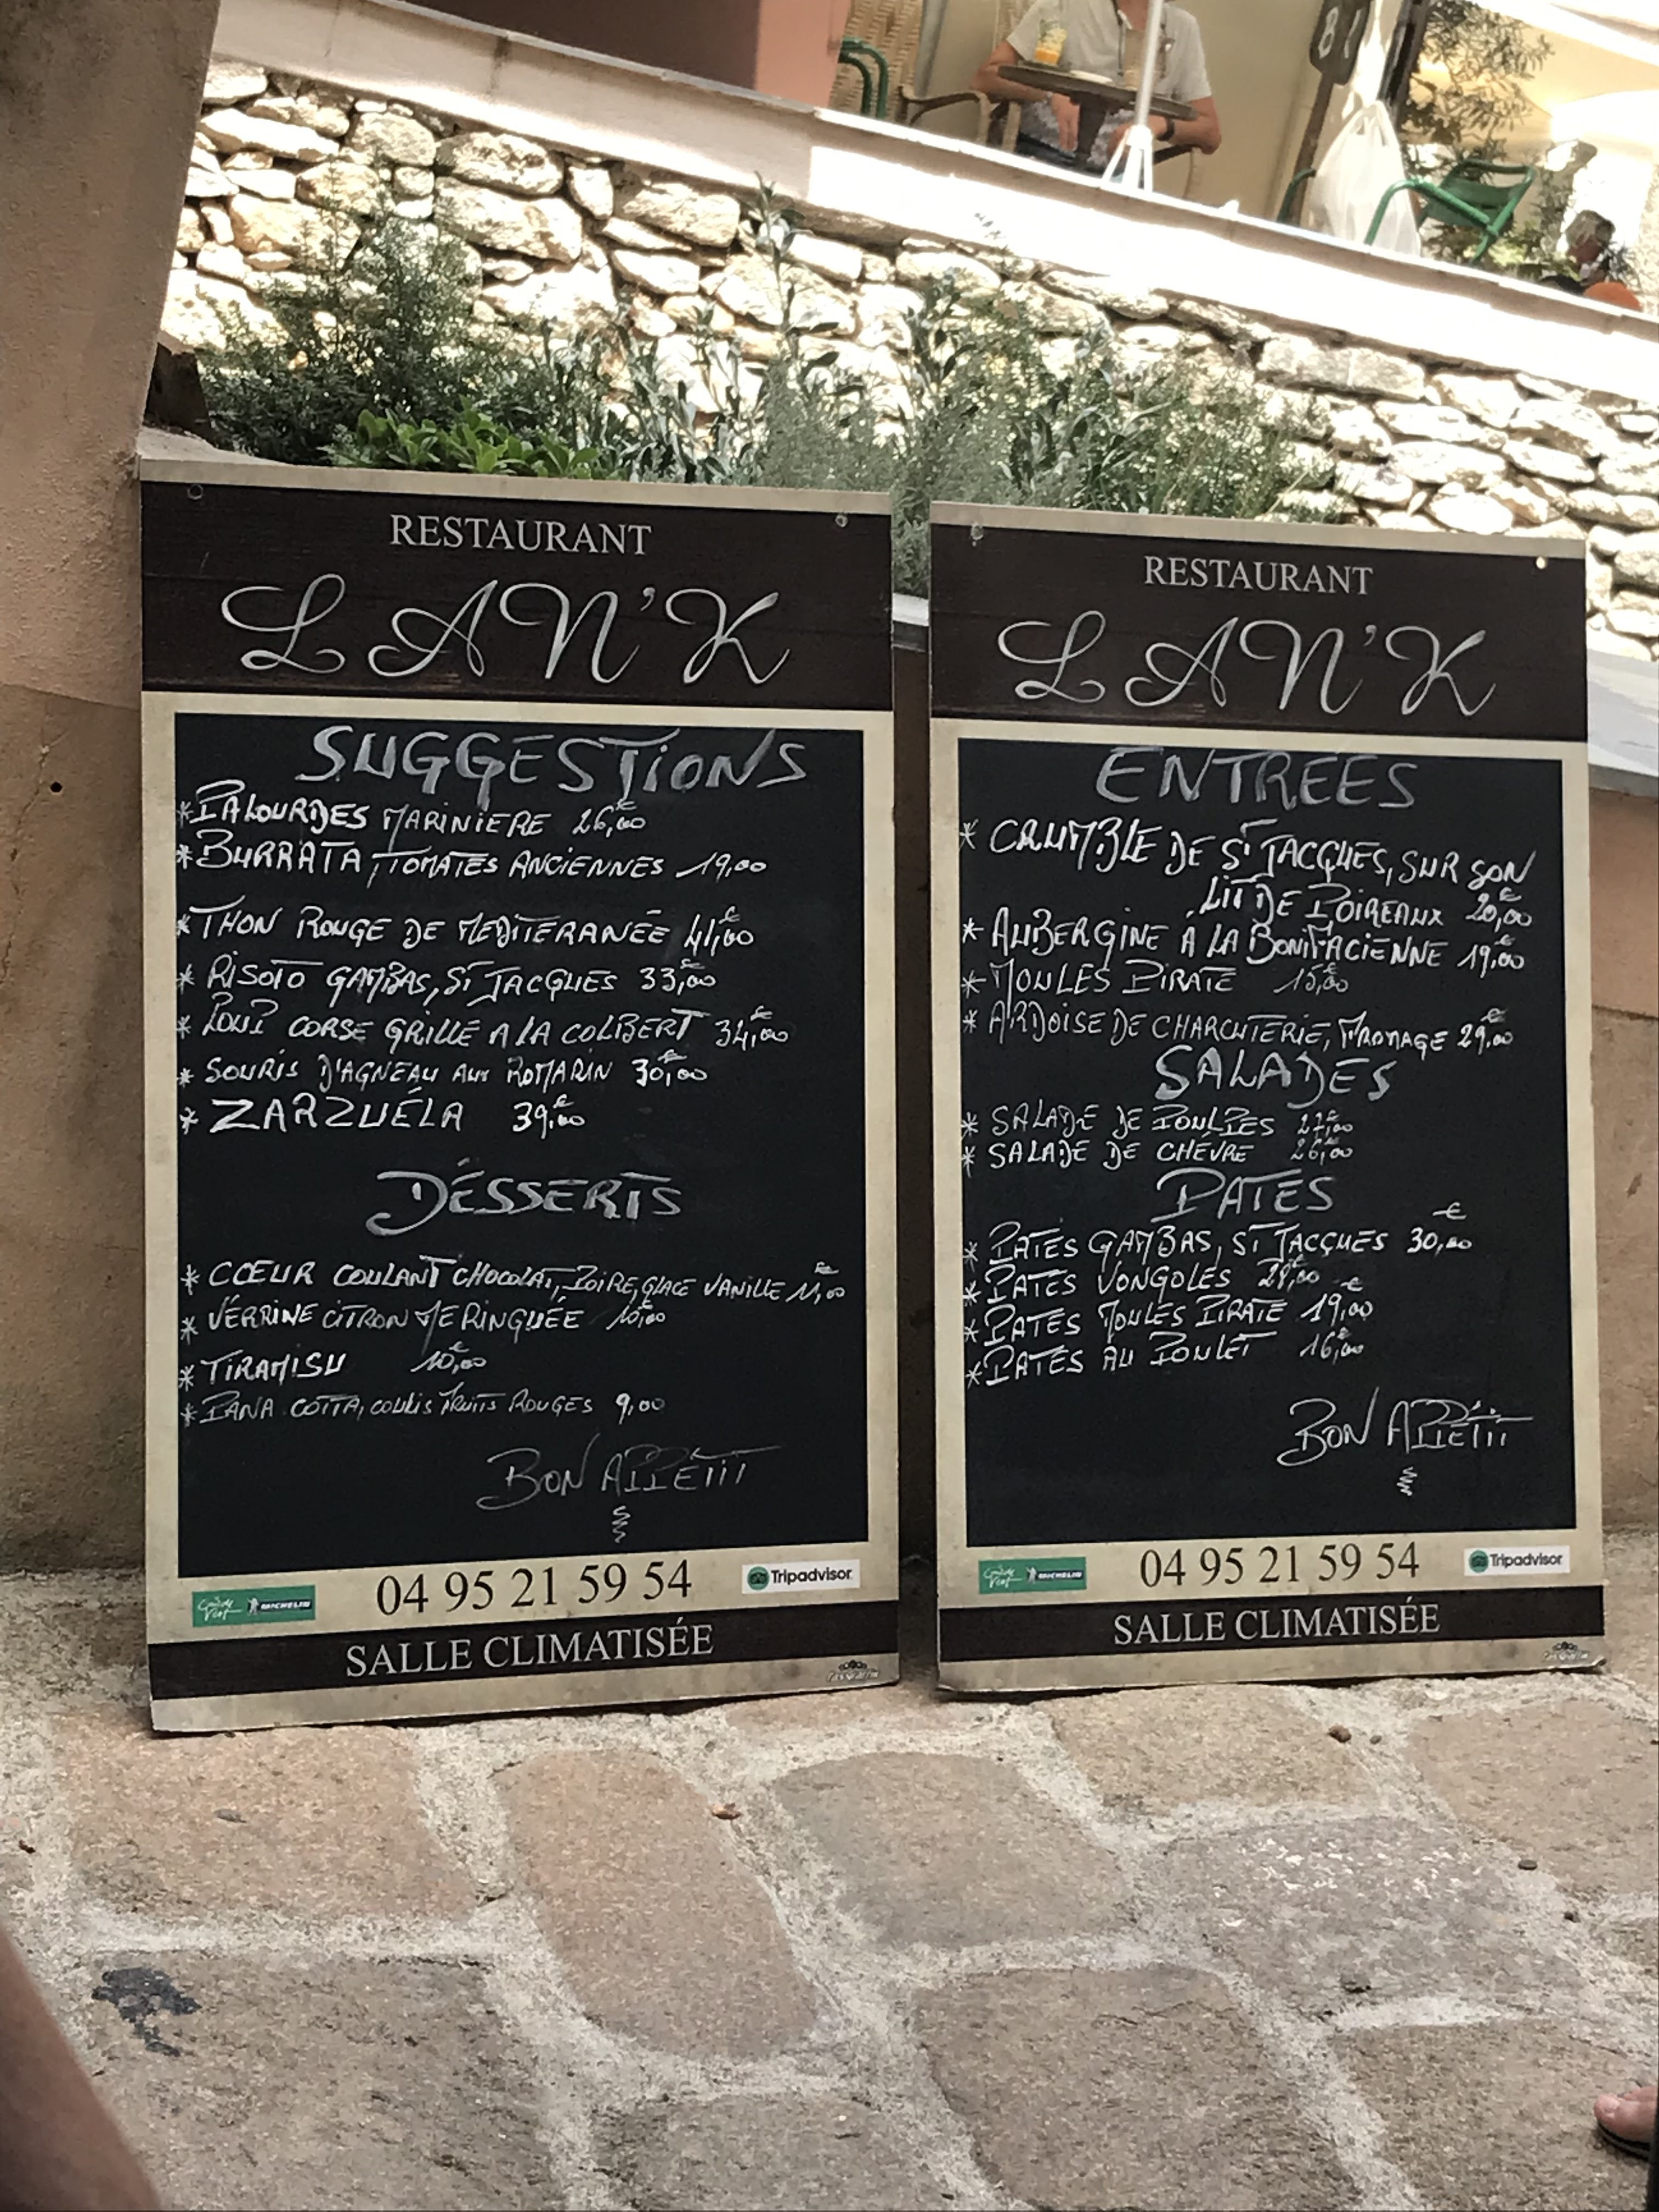 RESTAURANT
LAN'K
SUGGESTIONS
*PALOURDES MARINIERE 26,00€
*BURRATA, TOMATES ANCIENNES 19,00
*THON ROUGE DE MEDITERANÉE 41,00€
* RISOTO GAMBAS, ST JACQUES 33,00€
* LOUP CORSE GRILLÉ A LA COLIBERT 34,00€
* SOURIS D'AGNEAU AU ROMARIN 30,00€
* ZARZUÉLA 39,00€
DÉSSERTS
* CŒUR COULANT CHOCOLAT, POIRE, GLACE VANILLE 11,00€
* VÉRRINE CITRON MERINGUÉE 10,00€
* TIRAMISU 10,00€
* PANA COTTA, COULIS FRUITS ROUGES 9,00
BON APPÉTIT
04 95 21 59 54
MICHELIN
Tripadvisor
SALLE CLIMATISÉE
RESTAURANT
LAN'K
ENTRÉES
* CRUMBLE DE ST JACQUES, SUR SON
LIT DE POIREAUX 20,00€
* AUBERGINE À LA BONIFACIENNE 19,00€
* MOULES PIRATE 15,00€
* ARDOISE DE CHARCUTERIE, FROMAGE 29,00€
SALADES
* SALADE DE POULPES 27,00€
* SALADE DE CHÉVRE 26,00€
PATES
* PATES GAMBAS, ST JACQUES 30,00€
* PATES VONGOLES 28,00€
* PATES MOULES PIRATE 19,00€
* PATES AU POULET 16,00€
BON APPÉTIT
04 95 21 59 54
MICHELIN
Tripadvisor
SALLE CLIMATISÉE